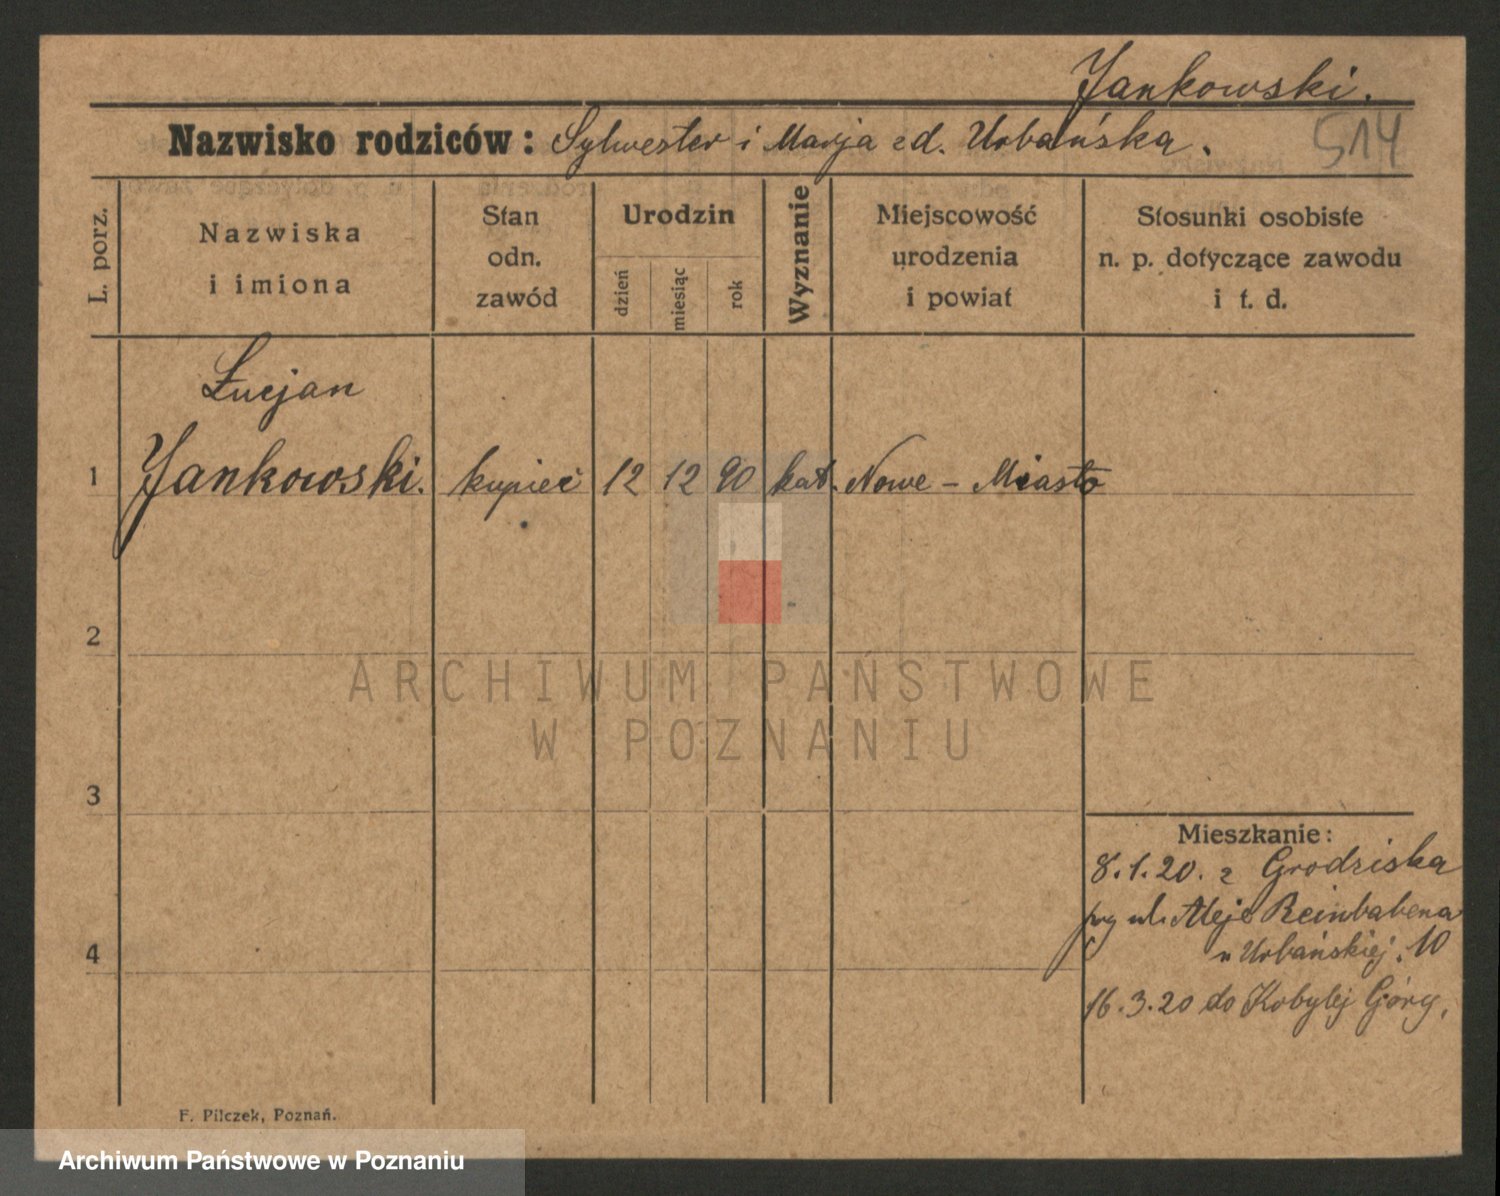 Jankowski.
Nazwisko rodziców: Sylwester i Marja zd. Urbańska.
514
L. porz.
Nazwiska
i imiona
Stan
odn.
zawód
Urodzin
dzień
miesiąc
rok
Wyznanie
Miejscowość
urodzenia
i powiat
Stosunki osobiste
n. p. dotyczące zawodu
i t. d.
Łucjan
1 Jankowski. kupiec 12 12 90 kat. Nowe - Miasto
2
ARCHIWUM PAŃSTWOWE
W POZNANIU
3
Mieszkanie:
8.1.20. z Grodziska
ul. Aleje Reinbabena
u Urbańskiej. 10
4
16.3.20 do Kobylej Góry.
F. Pilczek, Poznań.
Archiwum Państwowe w Poznaniu